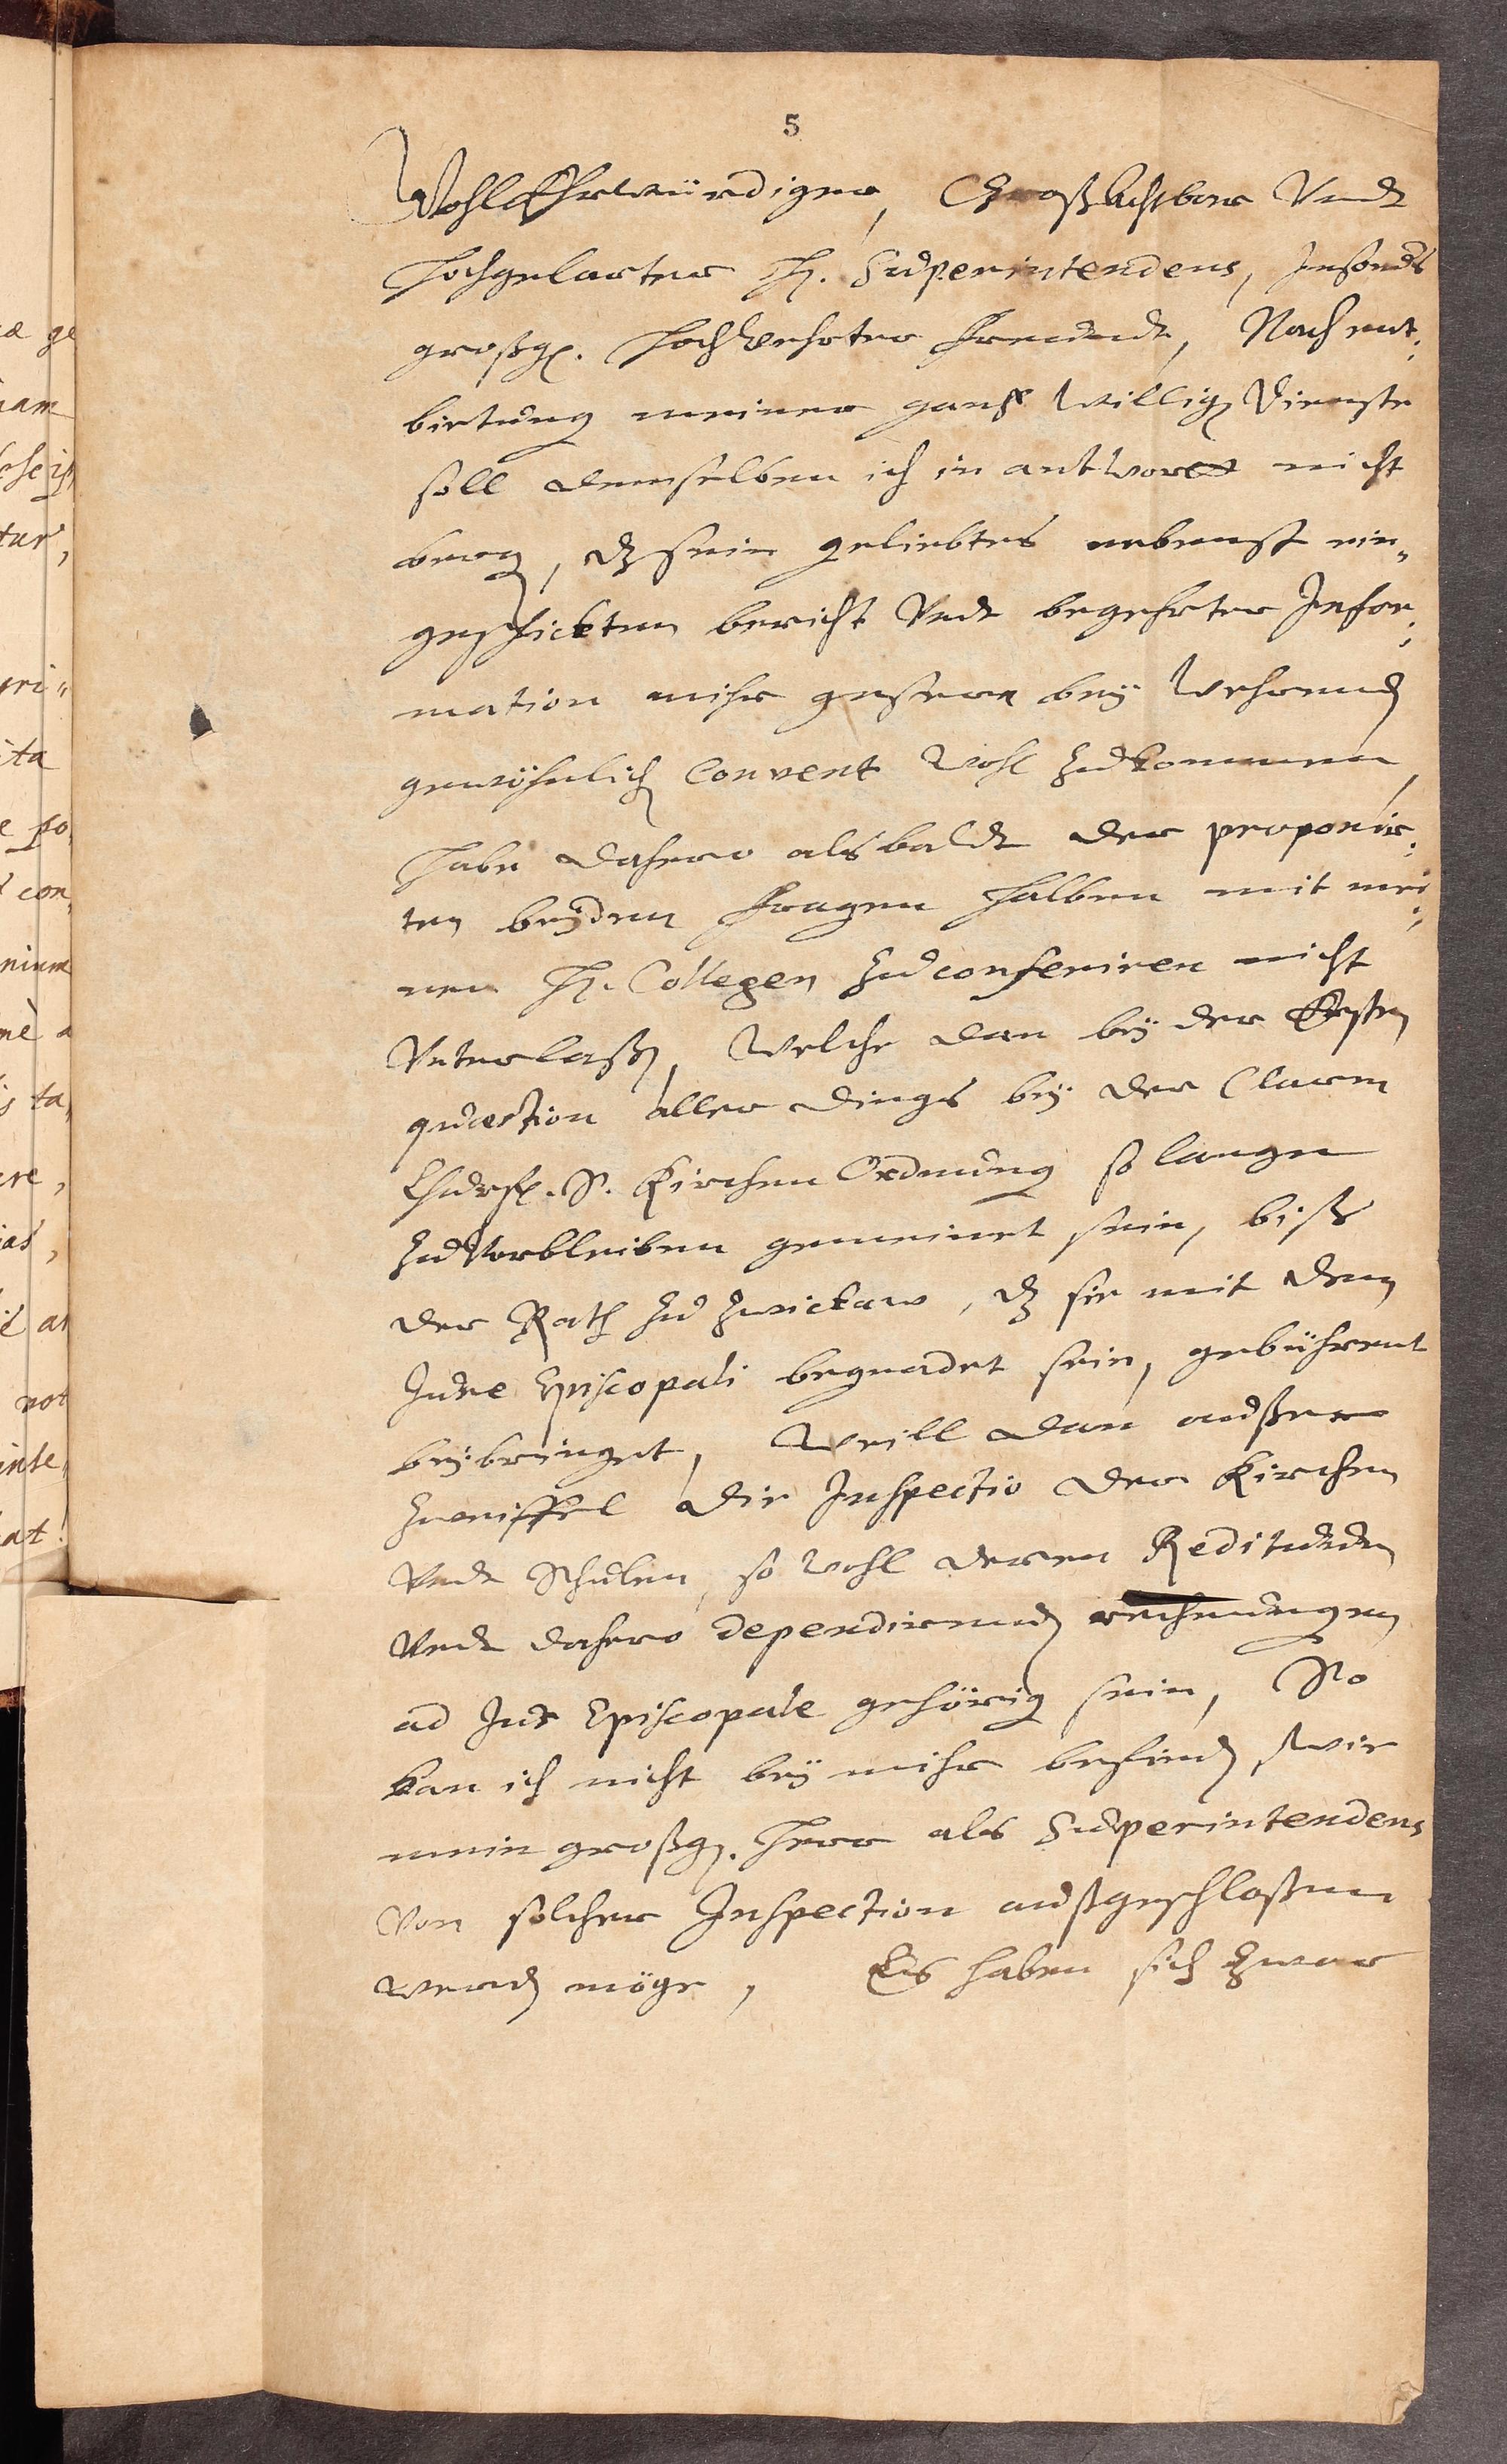 5
WohlEhrwürdiger, Großachtbar Undt
Hochgelarter H. Superintendens, Insonds
großg. Hochgeehrter freundt, Nach ent¬
bietung meiner gantz willig Dienste
soll demselben ich in antwort nicht
berg, dz sein geliebtes nebenst ein¬
geschickten bericht Undt begehrter Infor¬
mation mihr gestern bey wehrend
gewöhnlich Convent wohl zukommen,
Habe dahero alsbaldt der proponir¬
ten beyden fragen halben mit mei¬
nen H. Collegen zu conferiren nicht
Unterlaß, Welche dan bey der Ersten
quæstion aller dings bey der Claren
Churf. S. Kirchen Ordnung so lange
zu Vorbleiben gemeinet sein, biß
der Rath zu Zwickaw, dz sie mit dem
Jure Episcopali begnadet sein, gebührent
beybringet, Weill dan außer
Zweiffel die Inspectio der Kirchen
Undt Schulen, so wohl deren Redituum
Undt dahero dependirend rechnungen
ad Jus Episcopale gehörig sein, So
kan ich nicht bey mihr befind, wie
mein großg. Herr als Superintendens
von solcher Inspection außgeschloßen
werd möge, Es haben sich zwar
æ ge
iam
tur,
pri¬
ita
con¬
nium
ta¬
ere,
not
inte¬
at!